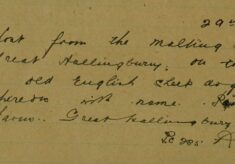 29th
lost from the malting
Great Hallingbury, on t
old English sheep do
thereon with name.
Farm. Great Hallingbury
P.c 325.